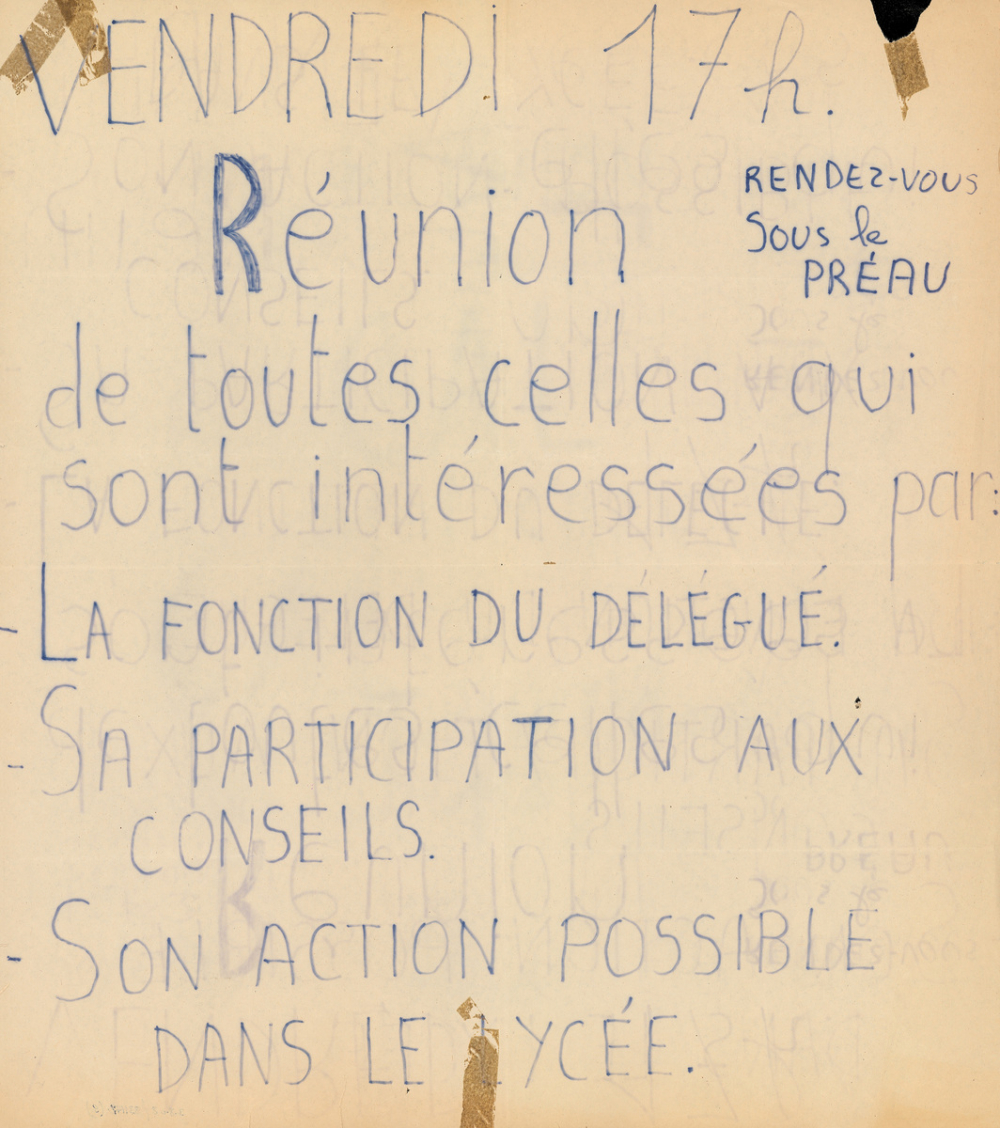 VENDREDI 17 h.
Réunion
RENDEZ-VOUS
Sous le
PRÉAU
de toutes celles qui
sont intéressées par:
- LA FONCTION DU DÉLÉGUÉ.
- SA PARTICIPATION AUX
CONSEILS.
- SON ACTION POSSIBLE
DANS LE LYCÉE.